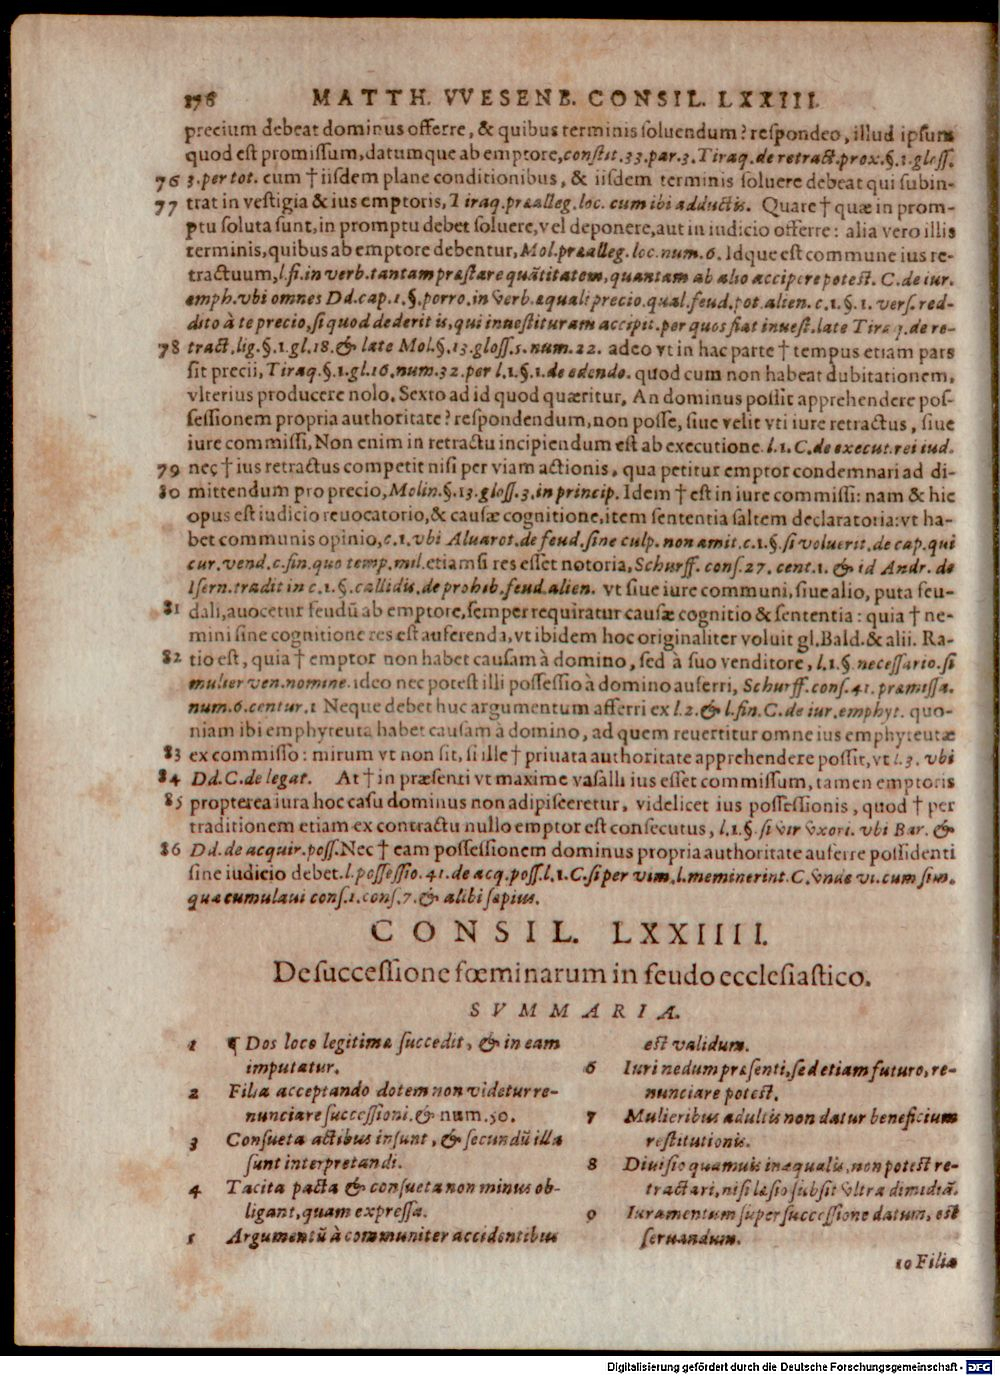 176 MATTH. VVESENB. CONSIL. LXXIII.
precium debeat dominus offerre, & quibus terminis soluendum? respondeo, illud ipsum
quod est promissum, datumque ab emptore, constit. 33. par. 3. Tiraq. de retract. prox. §. 1. gloss.
76 3. per tot. cum † iisdem plane conditionibus, & iisdem terminis soluere debeat qui subin-
77 trat in vestigia & ius emptoris, Tiraq. præalleg. loc. cum ibi adductis. Quare † quæ in prom-
ptu soluta sunt, in promptu debet soluere, vel deponere, aut in iudicio offerre: alia vero illis
terminis, quibus ab emptore debentur, Mol. præalleg. loc. num. 6. Idque est commune ius re-
tractuum, l. fi. in verb. tantam præstare quātitatem, quantam ab alio accipere potest. C. de iur.
emph. vbi omnes Dd. cap. 1. §. porro. in verb. æquali precio. qual. feud. pot. alien. c. 1. §. 1. vers. red-
dito à te precio, si quod dederit is, qui inuestituram accipit. per quos fiat inuest. late Tiraq. de re-
78 tract. lig. §. 1. gl. 18. & late Mol. §. 13. gloss. 5. num. 22. adeo vt in hac parte † tempus etiam pars
sit precii, Tiraq. §. 1. gl. 16. num. 32. per l. 1. §. 1. de edendo. quod cum non habeat dubitationem,
vlterius producere nolo. Sexto ad id quod quæritur, An dominus possit apprehendere pos-
sessionem propria authoritate? respondendum, non posse, siue velit vti iure retractus, siue
iure commissi, Non enim in retractu incipiendum est ab executione l. 1. C. de execut. rei iud.
79 nec † ius retractus competit nisi per viam actionis, qua petitur emptor condemnari ad di-
80 mittendum pro precio, Molin. §. 13. gloss. 3. in princip. Idem † est in iure commissi: nam & hic
opus est iudicio reuocatorio, & causæ cognitione, item sententia saltem declaratoria: vt ha-
bet communis opinio, c. 1. vbi Aluarot. de feud. sine culp. non amit. c. 1. §. si voluerit. de cap. qui
cur. vend. c. fin. quo temp. mil. etiamsi res esset notoria, Schurff. cons. 27. cent. 1. & id Andr. de
Isern. tradit in c. 1. §. callidis. de prohib. feud. alien. vt siue iure communi, siue alio, puta feu-
81 dali, auocetur feudū ab emptore, semper requiratur causæ cognitio & sententia: quia † ne-
mini sine cognitione res est auferenda, vt ibidem hoc originaliter voluit gl. Bald. & alii. Ra-
82 tio est, quia † emptor non habet causam à domino, sed à suo venditore, l. 1. §. necessario. si
mulier ven. nomine. ideo nec potest illi possessio à domino auferri, Schurff. cons. 41. præmissa.
num. 6. centur. 1 Neque debet huc argumentum afferri ex l. 2. & l. fin. C. de iur. emphyt. quo-
niam ibi emphyteuta habet causam à domino, ad quem reuertitur omne ius emphyteutæ
83 ex commisso: mirum vt non sit, si ille † priuata authoritate apprehendere possit, vt l. 3. vbi
84 Dd. C. de legat. At † in præsenti vt maxime vasalli ius esset commissum, tamen emptoris
85 propterea iura hoc casu dominus non adipisceretur, videlicet ius possessionis, quod † per
traditionem etiam ex contractu nullo emptor est consecutus, l. 1. §. si vir vxori. vbi Bar. &
86 Dd. de acquir. poss. Nec † eam possessionem dominus propria authoritate auferre possidenti
sine iudicio debet. l. possessio. 41. de acq. poss. l. 1. C. si per vim, l. meminerint. C. vnde vi. cum sim.
quæ cumulaui cons. 1. cons. 7. & alibi sæpius.
CONSIL. LXXIIII.
De successione fœminarum in feudo ecclesiastico.
SVMMARIA.
1 ¶ Dos loco legitimæ succedit, & in eam
imputatur.
2 Filia acceptando dotem non videtur re-
nunciare successioni. & num. 50.
3 Consueta actibus insunt, & secundū illa
sunt interpretandi.
4 Tacita pacta & consueta non minus ob-
ligant, quam expressa.
5 Argumentū à communiter accidentibus
est validum.
6 Iuri nedum præsenti, sed etiam futuro, re-
nunciare potest.
7 Mulieribus adultis non datur beneficium
restitutionis.
8 Diuisio quamuis inæqualis, non potest re-
tractari, nisi læsio subsit vltra dimidiā.
9 Iuramentum super successione datum, est
seruandum.
10 Filia
Digitalisierung gefördert durch die Deutsche Forschungsgemeinschaft - DFG